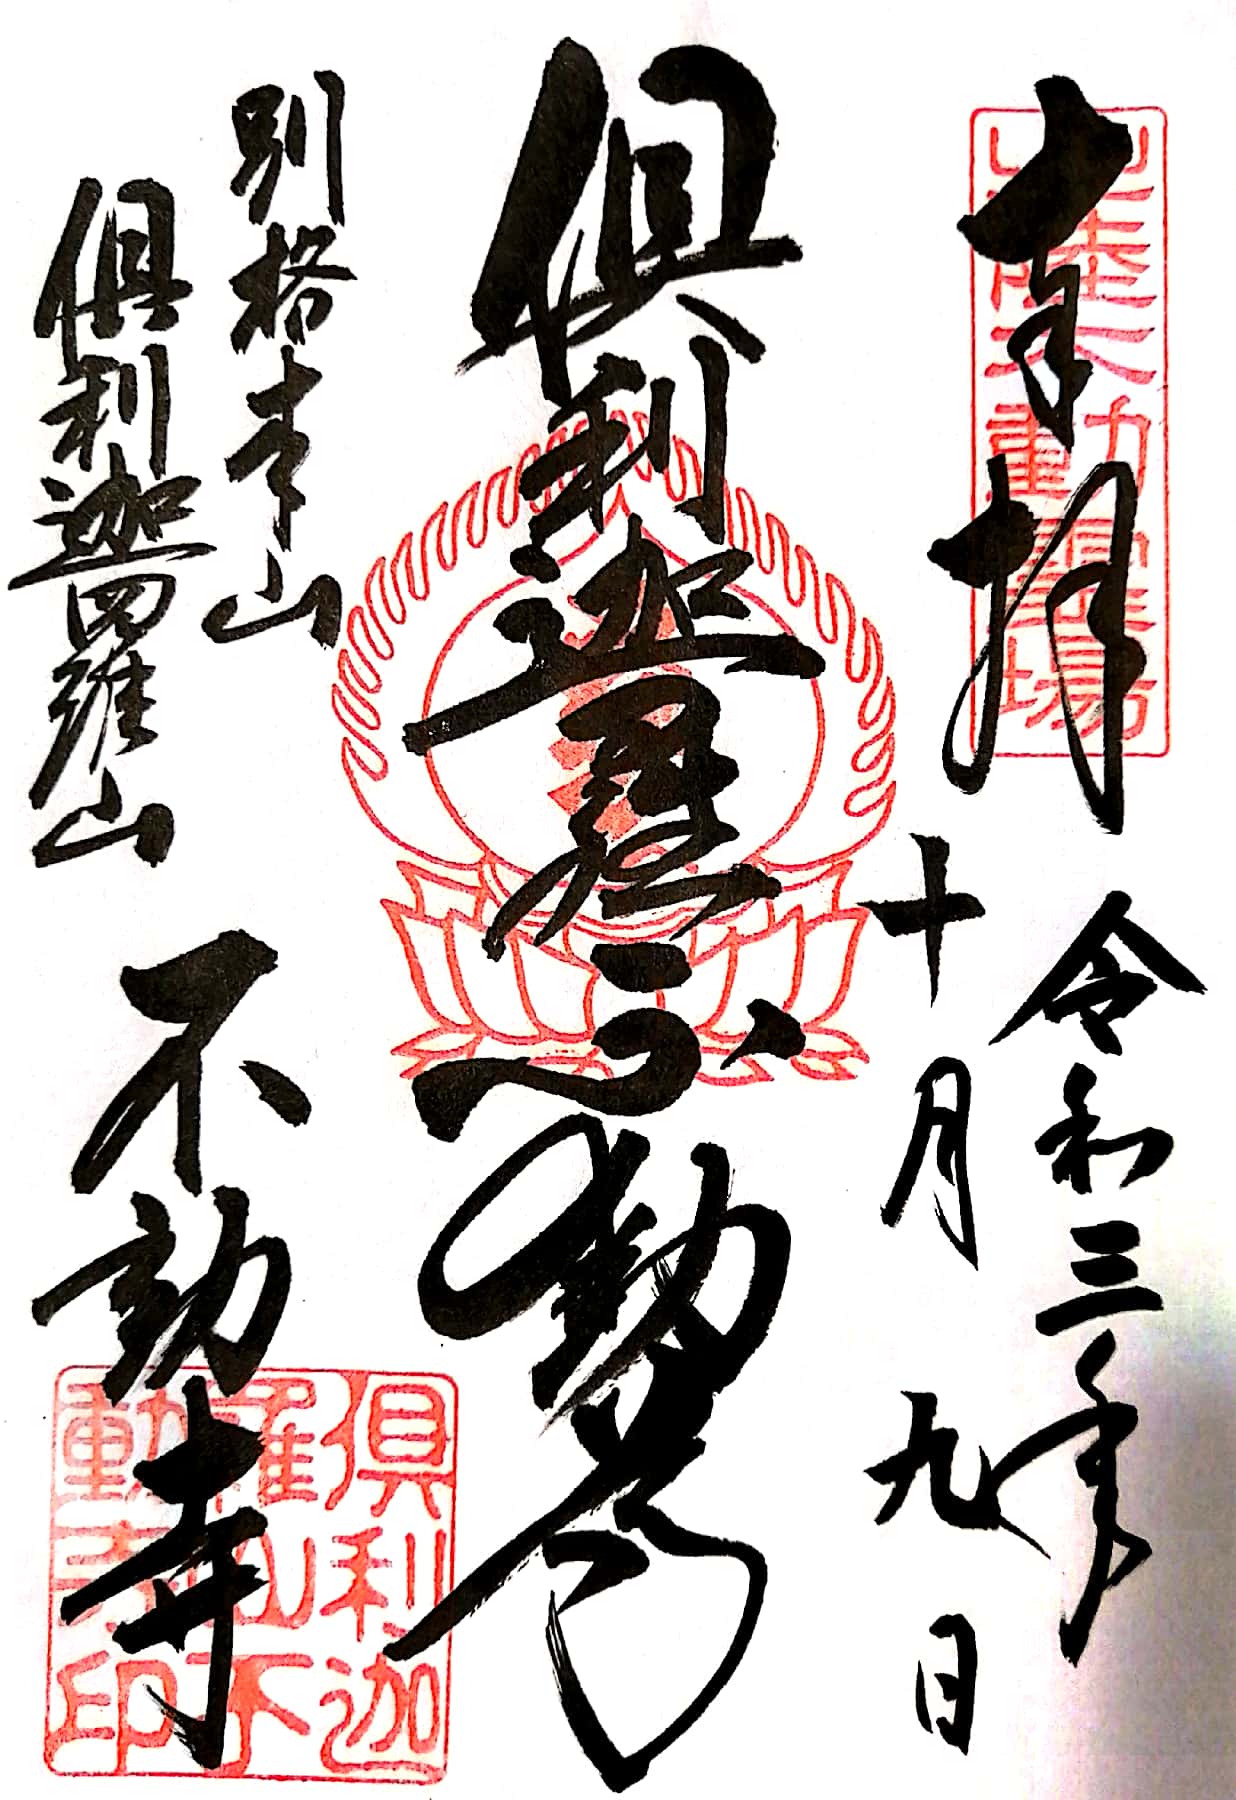 奉拝
北陸不動霊場
令和三年
十月九日
倶利迦羅不動尊
別格本山
倶利迦羅山
不動寺
倶利迦
羅山不
動寺印